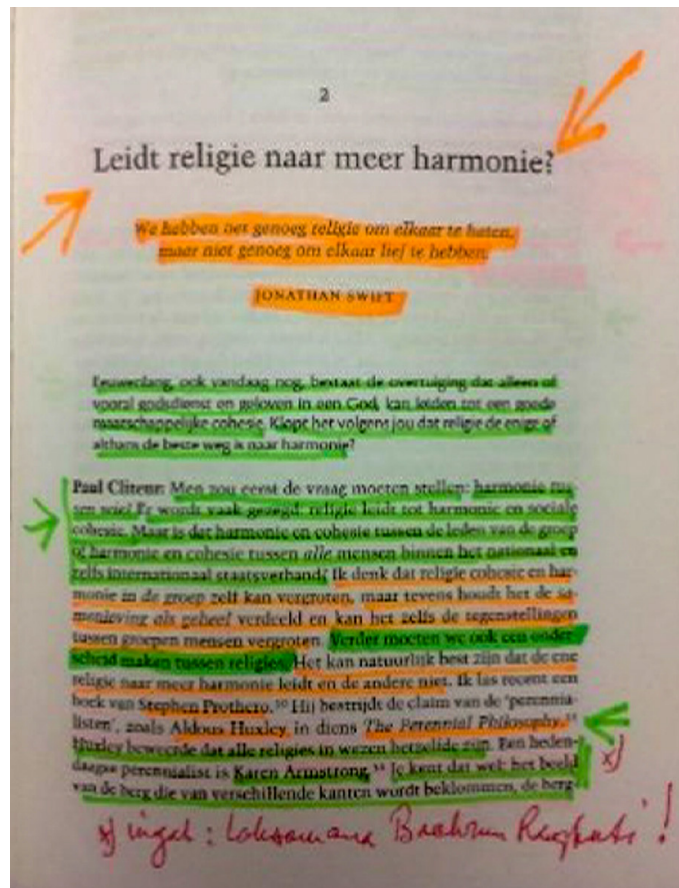 2
Leidt religie naar meer harmonie?
We hebben net genoeg religie om elkaar te haten,
maar niet genoeg om elkaar lief te hebben.
JONATHAN SWIFT
Eeuwenlang, ook vandaag nog, bestaat de overtuiging dat alleen of
vooral godsdienst en geloven in een God, kan leiden tot een goede
maatschappelijke cohesie. Klopt het volgens jou dat religie de enige of
althans de beste weg is naar harmonie?
Paul Cliteur: Men zou eerst de vraag moeten stellen: harmonie tus-
sen wie? Er wordt vaak gezegd: religie leidt tot harmonie en sociale
cohesie. Maar is dat harmonie en cohesie tussen de leden van de groep
of harmonie en cohesie tussen alle mensen binnen het nationaal en
zelfs internationaal staatsverband? Ik denk dat religie cohesie en har-
monie in de groep zelf kan vergroten, maar tevens houdt het de sa-
menleving als geheel verdeeld en kan het zelfs de tegenstellingen
tussen groepen mensen vergroten. Verder moeten we ook een onder-
scheid maken tussen religies. Het kan natuurlijk best zijn dat de ene
religie naar meer harmonie leidt en de andere niet. Ik las recent een
boek van Stephen Prothero. Hij bestrijdt de claim van de 'perennia-
listen', zoals Aldous Huxley, in diens The Perennial Philosophy.
Huxley beweerde dat alle religies in wezen hetzelfde zijn. Een heden-
daagse perennialist is Karen Armstrong. Je kent dat wel: het beeld
van de berg die van verschillende kanten wordt beklommen, de berg
x)
x) ingat : Laksamana !